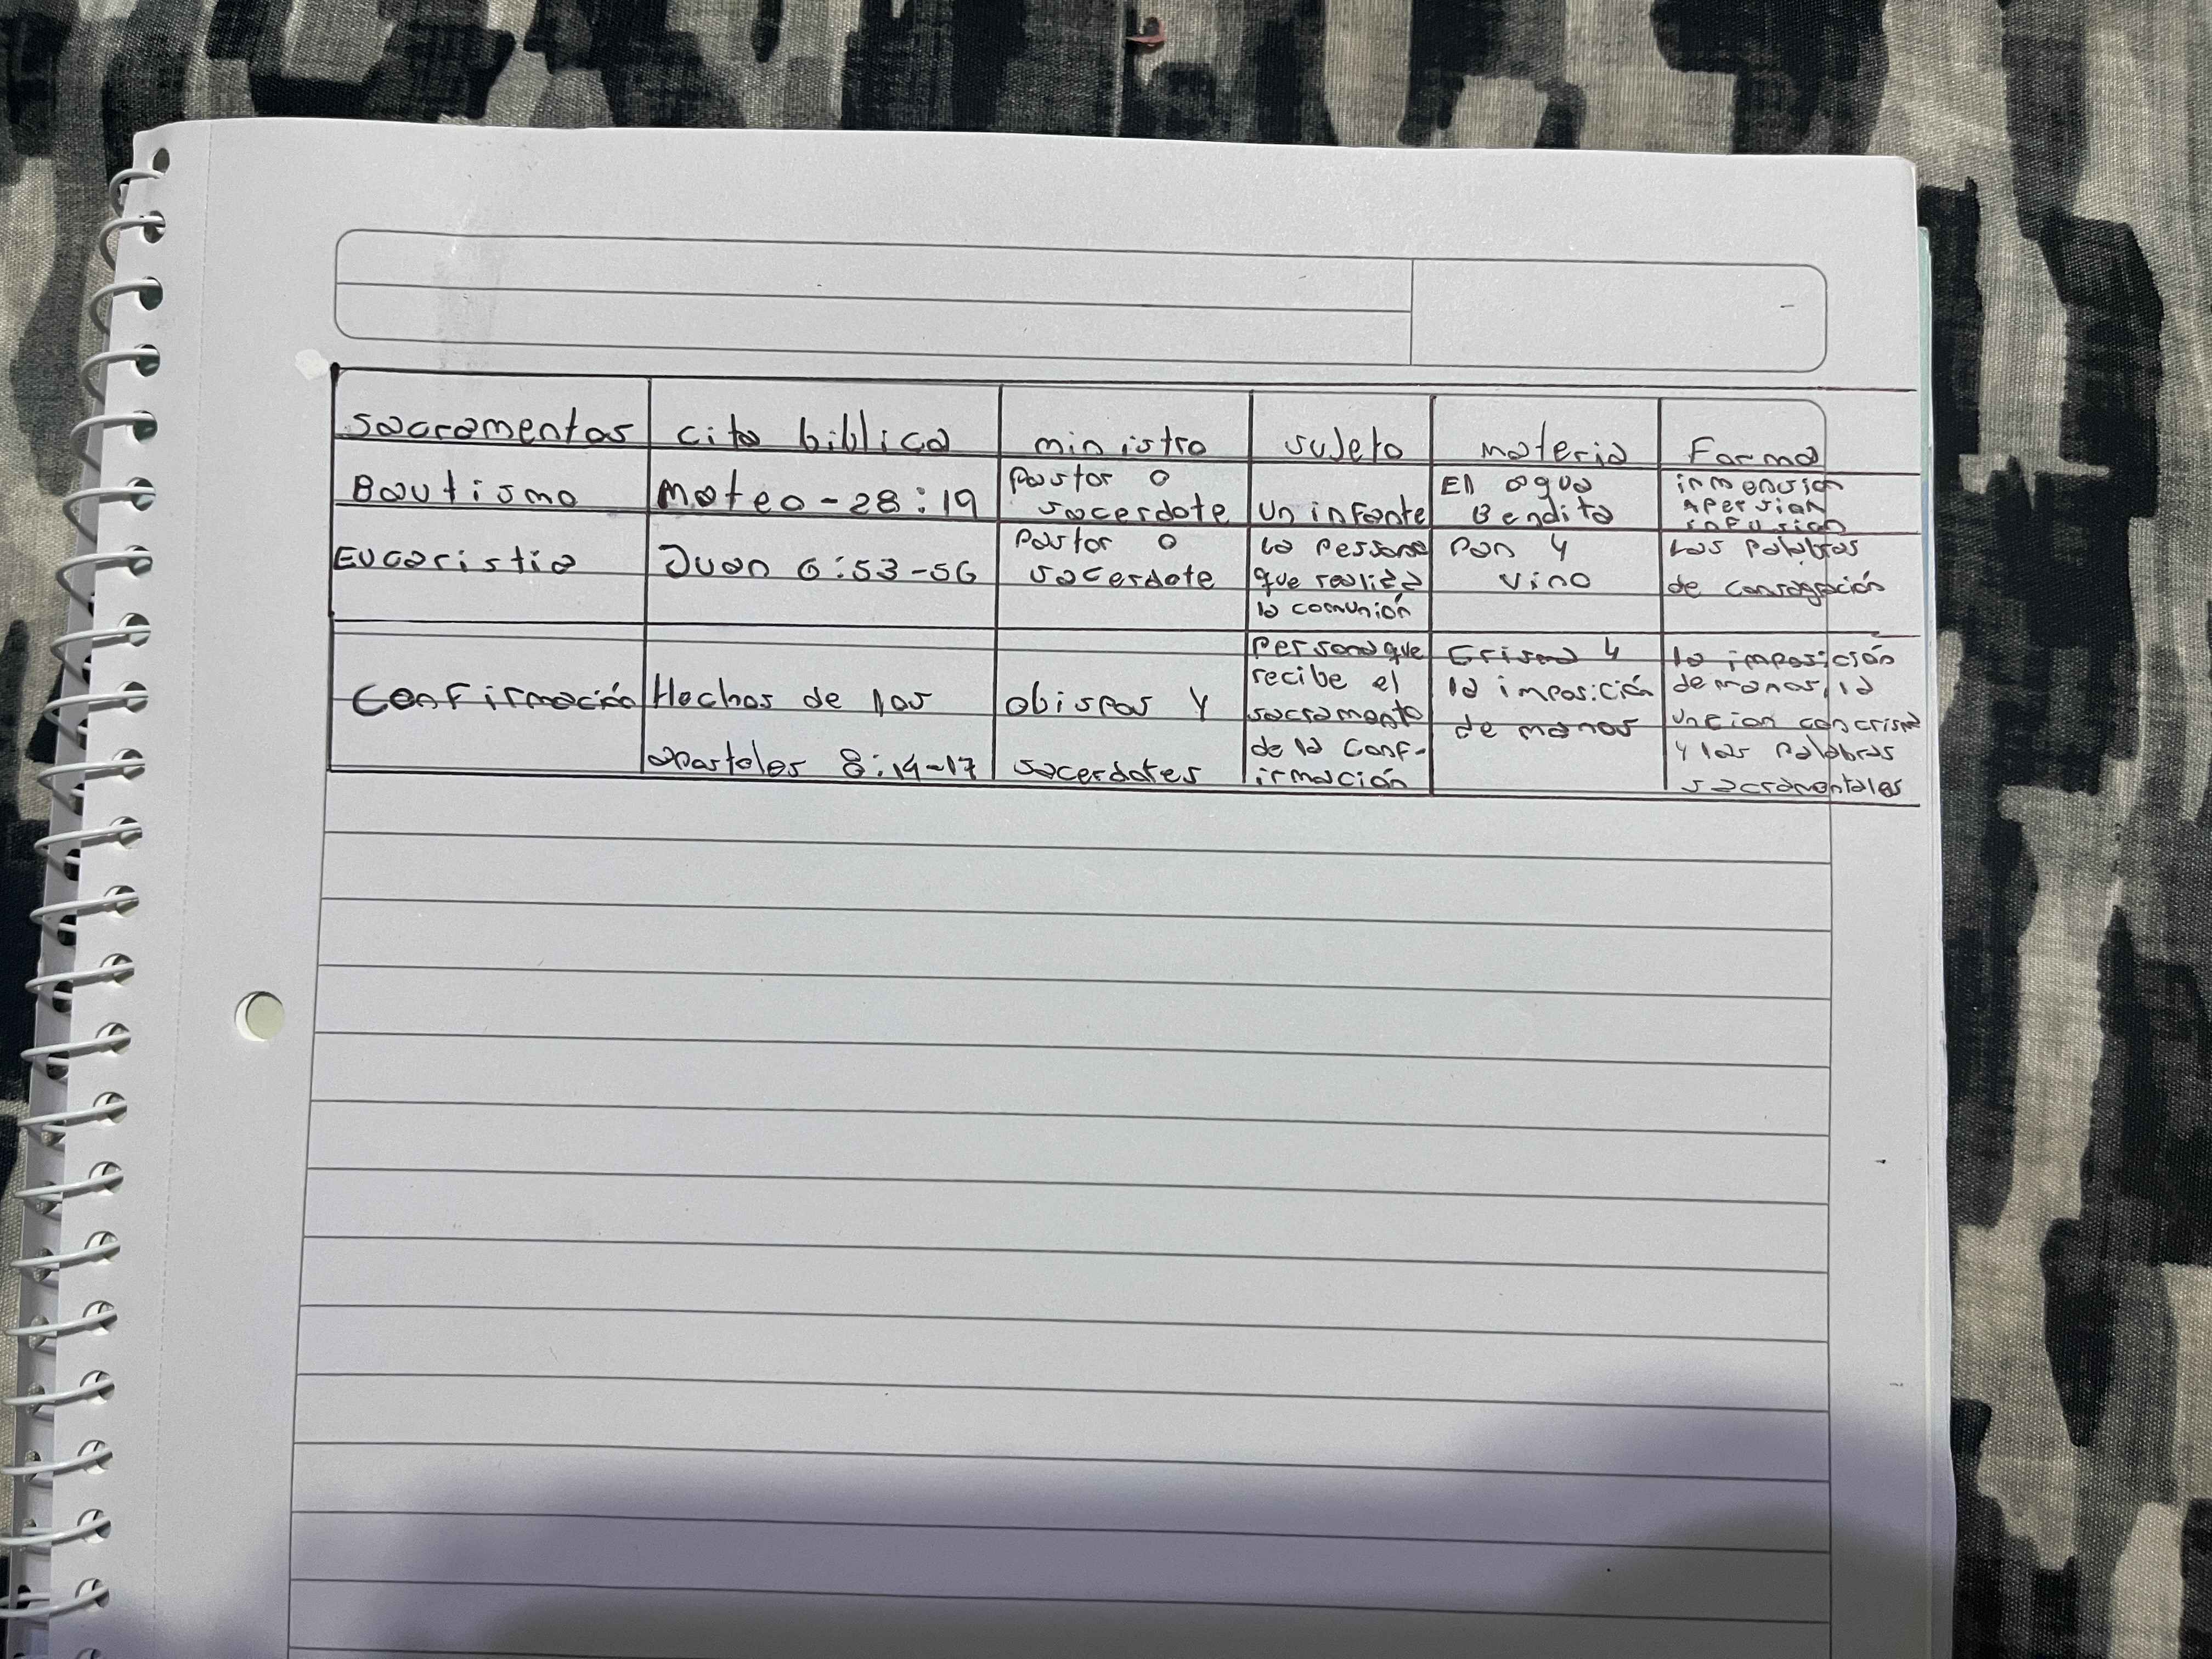 sacramentos cita biblica ministro sujeto materia Forma
Bautismo
mateo - 28:19
Pastor o
sacerdote
un infante
El agua
Bendita
inmension
Apersian
infusion
Eucaristia
Juan 6:53-56
Pastor o
sacerdote
la persona
que realiza
la comunión
Pan y
vino
Las palabras
de consagración
Confirmación
Hechos de los
apostoles 8:14-17
obispos y
sacerdotes
Persona que
recibe el
sacramento
de la Conf-
irmación
Crisma y
la imposición
de manos
la imposición
de manos, la
uncion con crisma
y las palabras
sacramentales